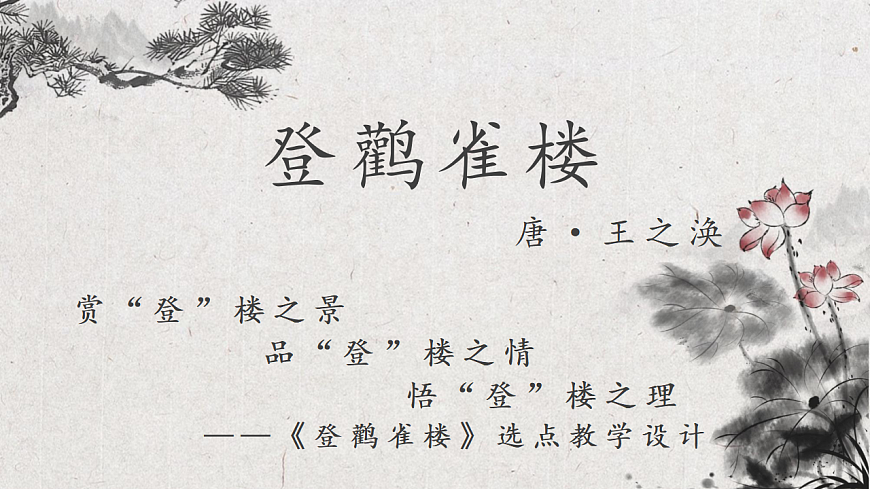 登鹳雀楼
唐·王之涣
赏“登”楼之景
品“登”楼之情
悟“登”楼之理
——《登鹳雀楼》选点教学设计